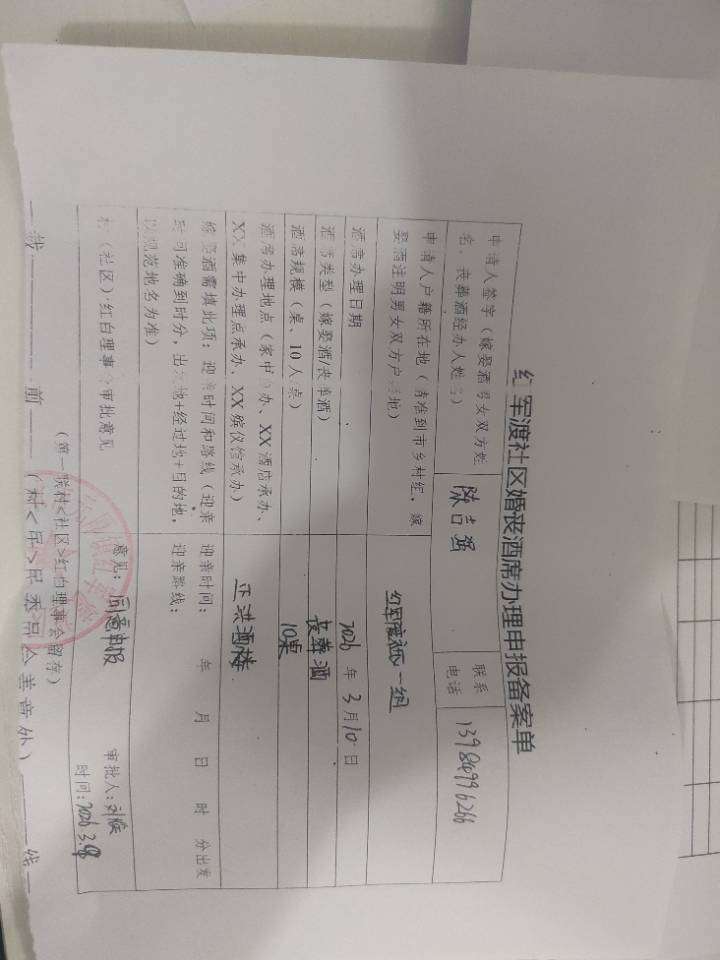 红军渡社区婚丧酒席办理申报备案单
申请人签字（嫁娶酒男女双方姓
名、丧葬酒经办人姓名）
陈吉强
联系
电话
申请人户籍所在地（请准到市乡村红、嫁
娶酒注明男女双方户籍地）
红军渡社区一组
酒席办理日期
2026 年 3 月 10 日
酒席类型（嫁娶酒/丧葬酒）
丧葬酒
酒席规模（桌、10人/桌）
10桌
酒席办理地点（家中自办、XX酒店承办、
XX集中办理点承办、XX殡仪馆承办）
正洪酒楼
嫁娶酒需填此项：迎亲时间和路线（迎亲
时间准确到时分，出发地+经过地+目的地，
以规范地名为准）
迎亲时间： 年 月 日 时 分出发
迎亲路线：
村（社区）红白理事会审批意见
意见：同意申报
审批人：刘
时间：2026.3.
（第一联村<社区>红白理事会留存）